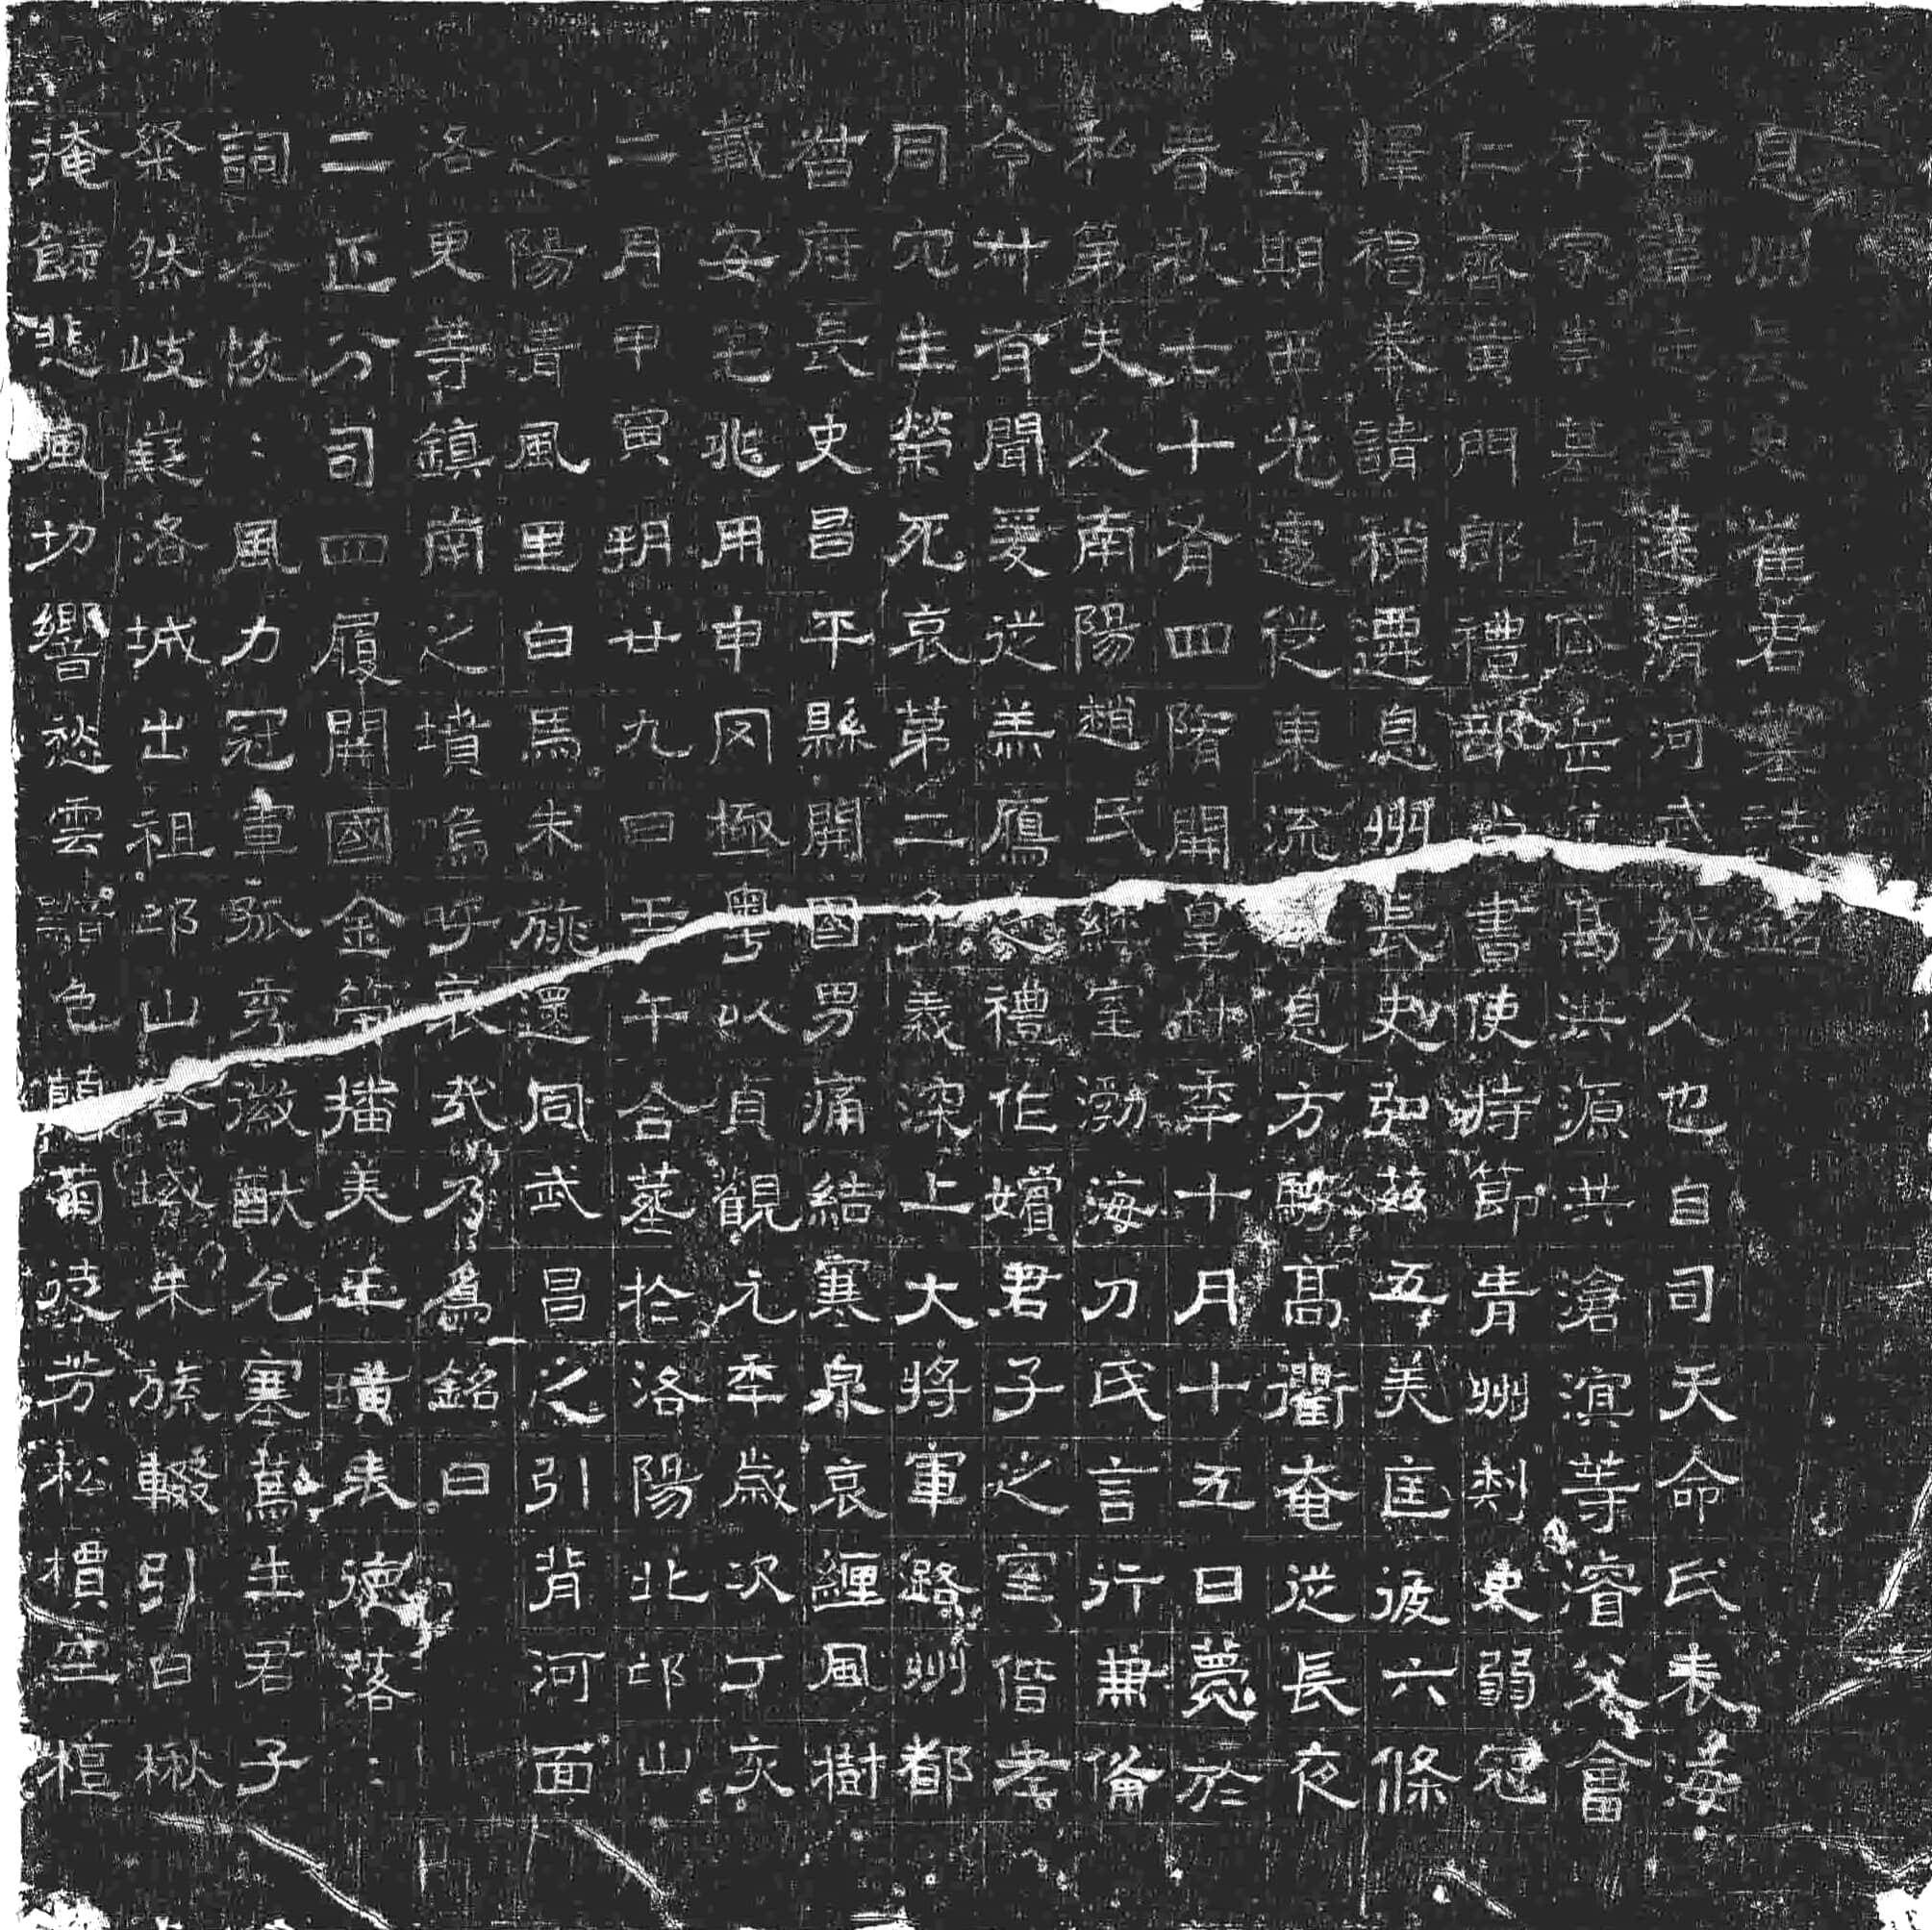 息州長史崔君墓誌銘
君諱志字遠請河武城人也自司天命氏表海
承家崇基与岱岳高洪源共滄溟等濬父會
仁齊黃門郎禮部尚書使持節青州刺史弱冠
釋褐奉請稍遷息州長史弘茲五美匡彼六條
豈期西光遽從東流息方騁高衢奄從長夜
春秋七十有四隋開皇廿年十月十五日薨於
私第夫人南陽趙氏繼室渤海刀氏言行兼備
令淑有聞爰從羔鴈六禮作嬪君子之室偕老
同穴生榮死哀第二子義深上大將軍潞州都
督府長史昌平縣開國男痛結寒泉哀纏風樹
載安宅兆用申罔極粵以貞觀元年歲次丁亥
二月甲寅朔廿九日壬午合墓於洛陽北邙山
之陽清風里白馬朱旐還同武昌之引背河面
洛更等鎮南之墳嗚呼哀哉乃為銘曰
二正分司四履開國金箱播美玉璜表德落〻
詞峯恢〻風力冠軍孤秀徽猷允塞蔿生君子
粲然岐嶷洛城出祖邙山啓域朱旒輟引白楸
掩飾悲風切響愁雲黯色蘭菊徒芳松檟空植